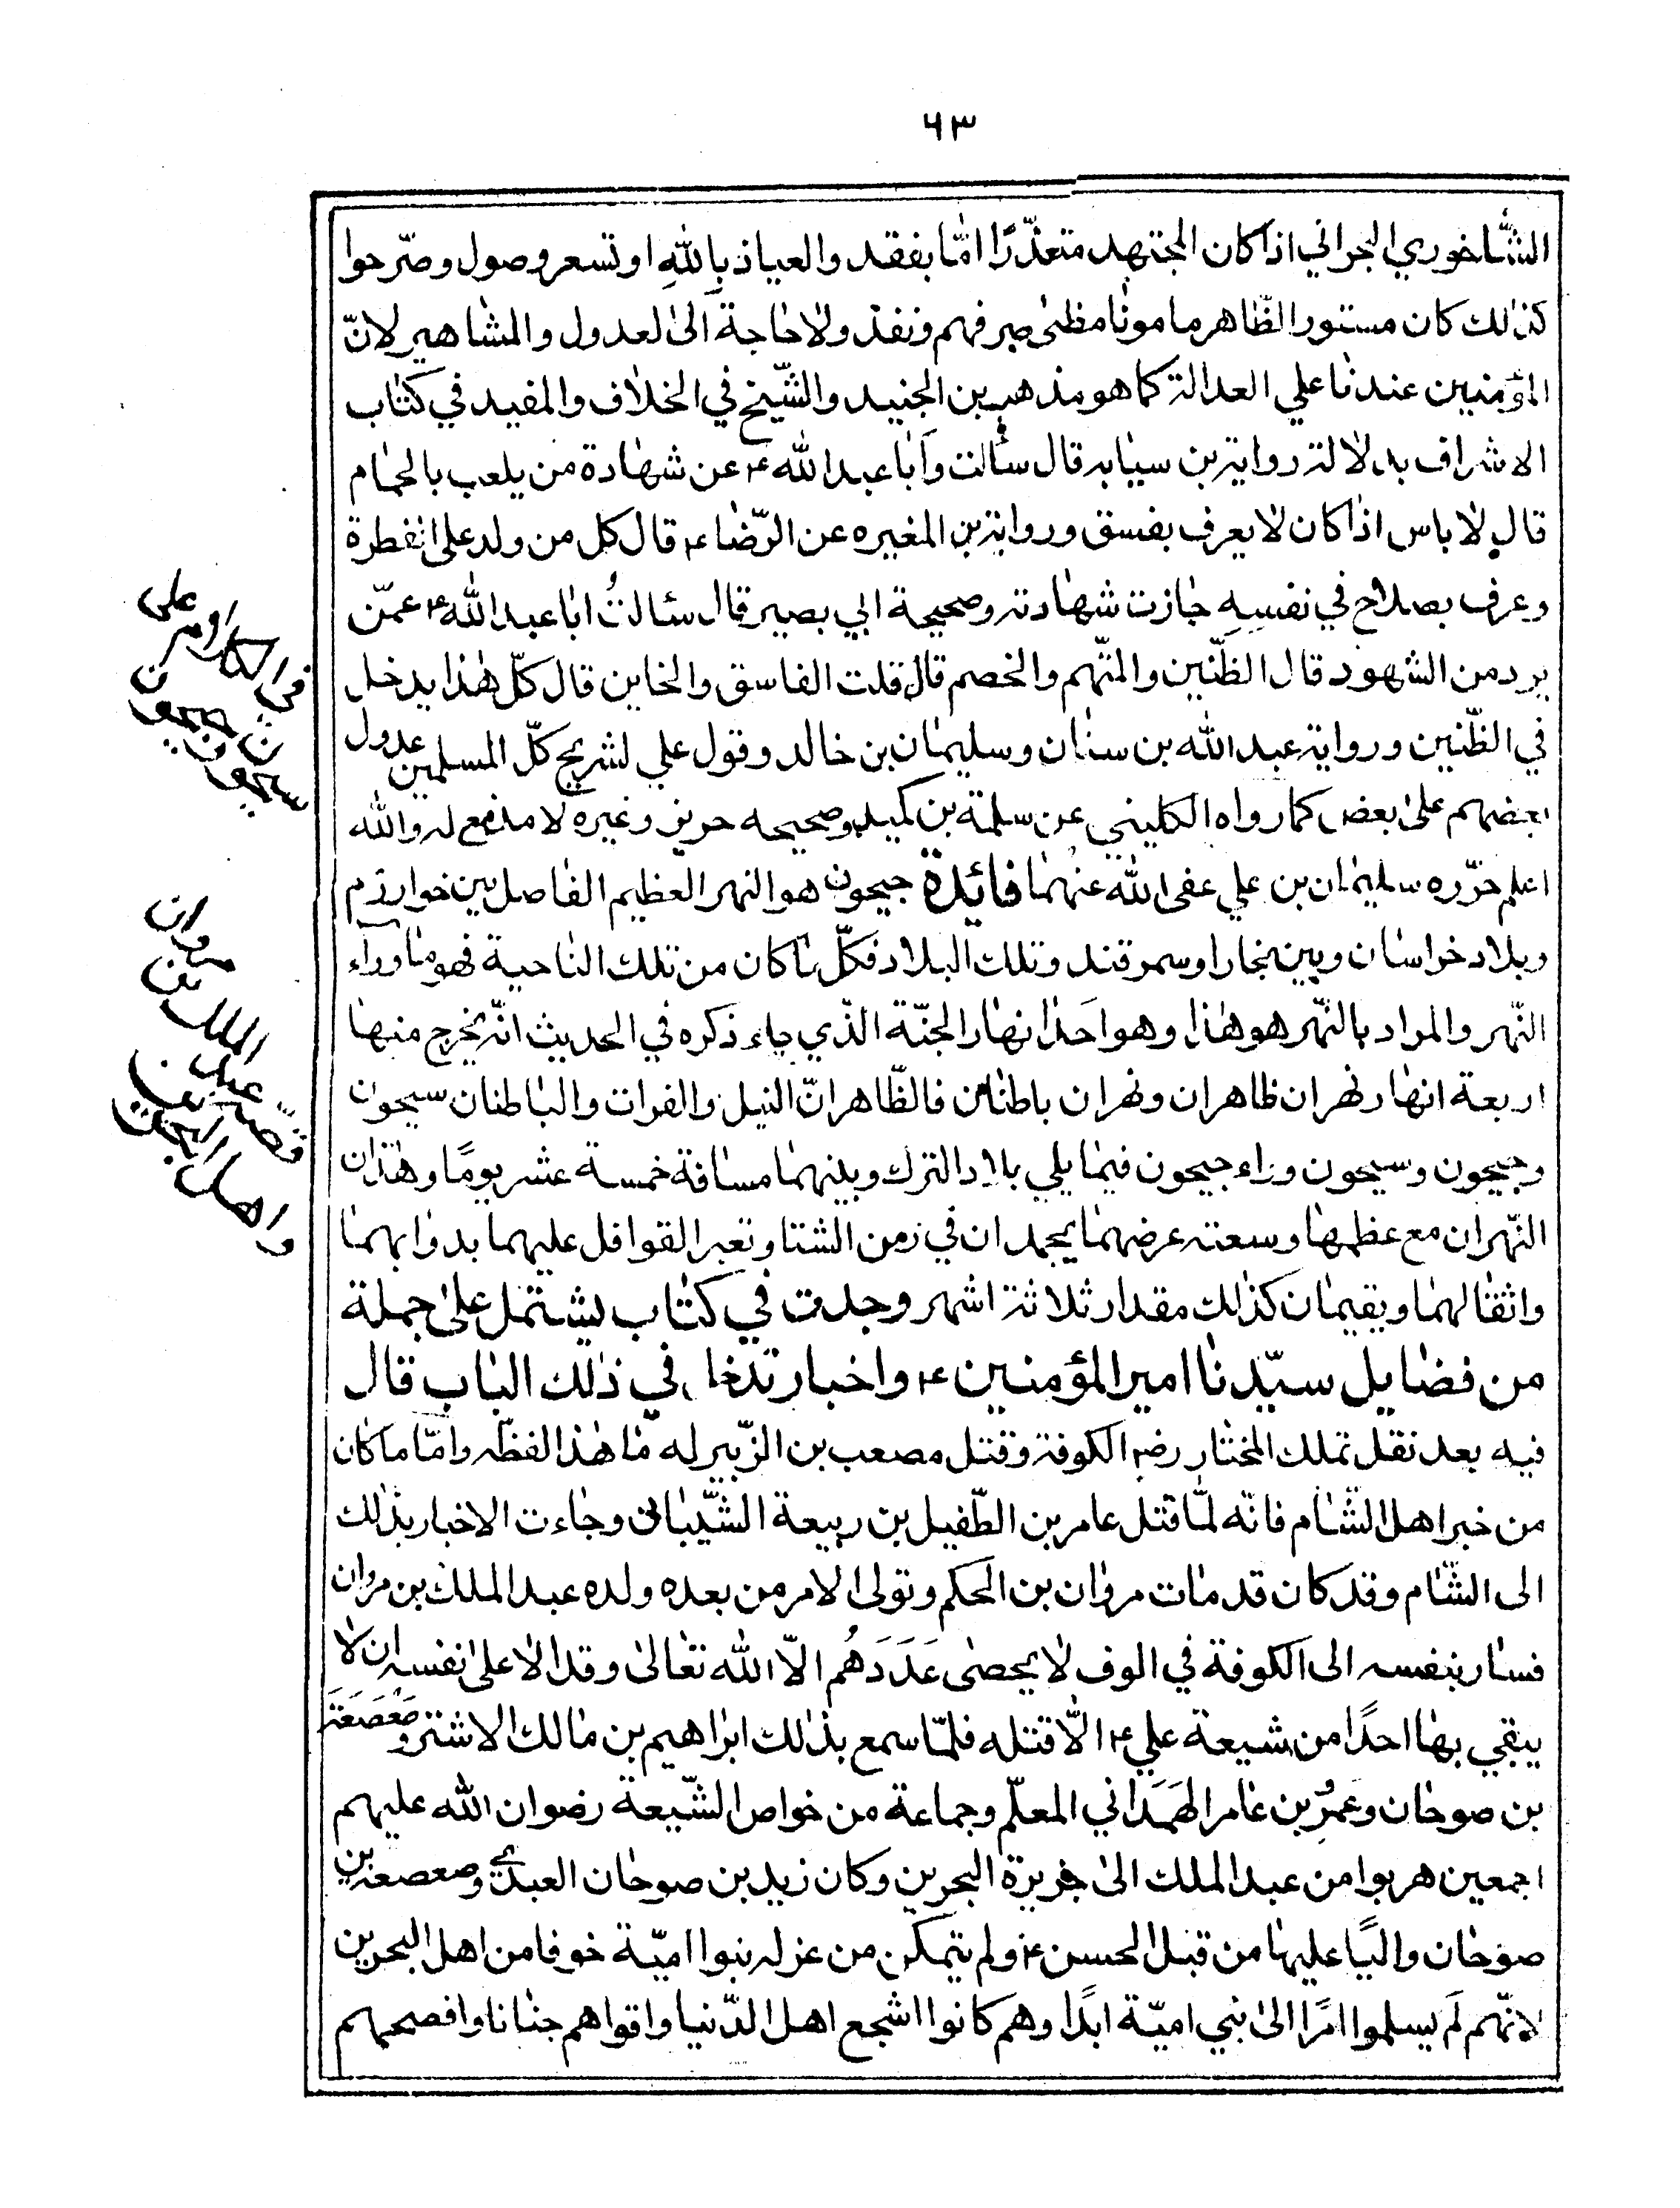 ٦٣
الشّاخوري البحراني اذا كان المجتهد متعذّرًا امّا بفقد والعياذ بالله او تسعر وصول وصرّحوا
كذلك كان مستور الظّاهر مامونا مظنى صرفهم ونفذ ولا حاجة الى لعدول والمشاهير لانّ
المؤمنين عندنا علي العدالة كما هو مذهب بن الجنيد والشّيخ في الخلاف والمفيد في كتاب
الاشراف بدلالة رواية بن سيابه قال سألت وأبا عبد الله ع عن شهادة من يلعب بالحمام
قال لا باس اذا كان لا يعرف بفسق ورواية بن المغيره عن الرّضا ع قال كل من ولد على انفطرة
وعرف بصلاح في نفسه جازت شهادته وصحيحة ابي بصير قال سئالتُ ابا عبد الله ع عمّن
يرد من الشهود قال الظّنين والمتّهم والخصم قال قلت الفاسق والخاين قال كلّ هذا يدخل
في الظّنين ورواية عبد الله بن سنان وسليمان بن خالد وقول علي لشريح كلّ المسلمين عدول
بعضهم على بعض كما رواه الكليني عن سلمة بن كميل وصحيحه حريز وغيره لا مدفع له والله
اعلم حرّره سليمان بن علي عفى الله عنهما فائدة جيحون هو النهر العظيم الفاصل بين خوارزم
وبلاد خراسان وبين بخارا وسمرقند وتلك البلاد فكلّ ما كان من تلك الناحية فهو ما وراء
النّهر والمراد بالنّهر هو هذا وهو احد انهار الجنّة الذّي جاء ذكره في الحديث انّه يخرج منها
اربعة انهار نهران ظاهران ونهران باطنان فالظّاهران النيل والفرات والباطنان سيحون
وجيحون وسيحون وراء جيحون فيما يلي بلاد الترك وبينهما مسافة خمسة عشر يومًا وهذان
النّهران مع عظمها وسعته عرضهما يجمدان في زمن الشتا وتعبر القوافل عليهما بدوابهما
واثقالهما ويقيمان كذلك مقدار ثلاثة اشهر وجدت في كتاب يشتمل على جملة
من فضايل سيّدنا امير المؤمنين ع واخبار تدغا في ذلك الباب قال
فيه بعد نقل تملك المختار رض الكوفة وقتل مصعب بن الزّبير له ما هذا لفظه وامّا ما كان
من خبر اهل الشّام فانّه لمّا قتل عامر بن الطّفيل بن ربيعة الشّيباني وجاءت الاخبار بذلك
الى الشّام وقد كان قد مات مروان بن الحكم وتولى الامر من بعده ولده عبد الملك بن مروان
فسار بنفسه الى الكوفة في الوف لا يحصى عَدَدَهُم الّا الله تعالى وقد الا على نفسه ان لا
يبقي بها احدًا من شيعة علي ع الّا قتله فلمّا سمع بذلك ابراهيم بن مالك الاشتر وصَعْصَعَة
بن صوحان وعمرُ بن عامر الهَمَداني المعلّم وجماعة من خواص الشّيعة رضوان الله عليهم
اجمعين هربوا من عبد الملك الى جزيرة البحرين وكان زيد بن صوحان العبدي وصعصعة بن
صوحان واليًا عليها من قبل الحسن ع ولم يتمكن من عزله بنوا اميّة خوفا من اهل البحرين
لانّهم لم يسلموا امرًا الى بني اميّة ابدًا وهم كانوا اشجع اهل الدّنيا واقواهم جنانا وافصحهم
في الكلام على
جيحون
سيحون
قصّة عبد الملك بن مروان
واهل البحرين